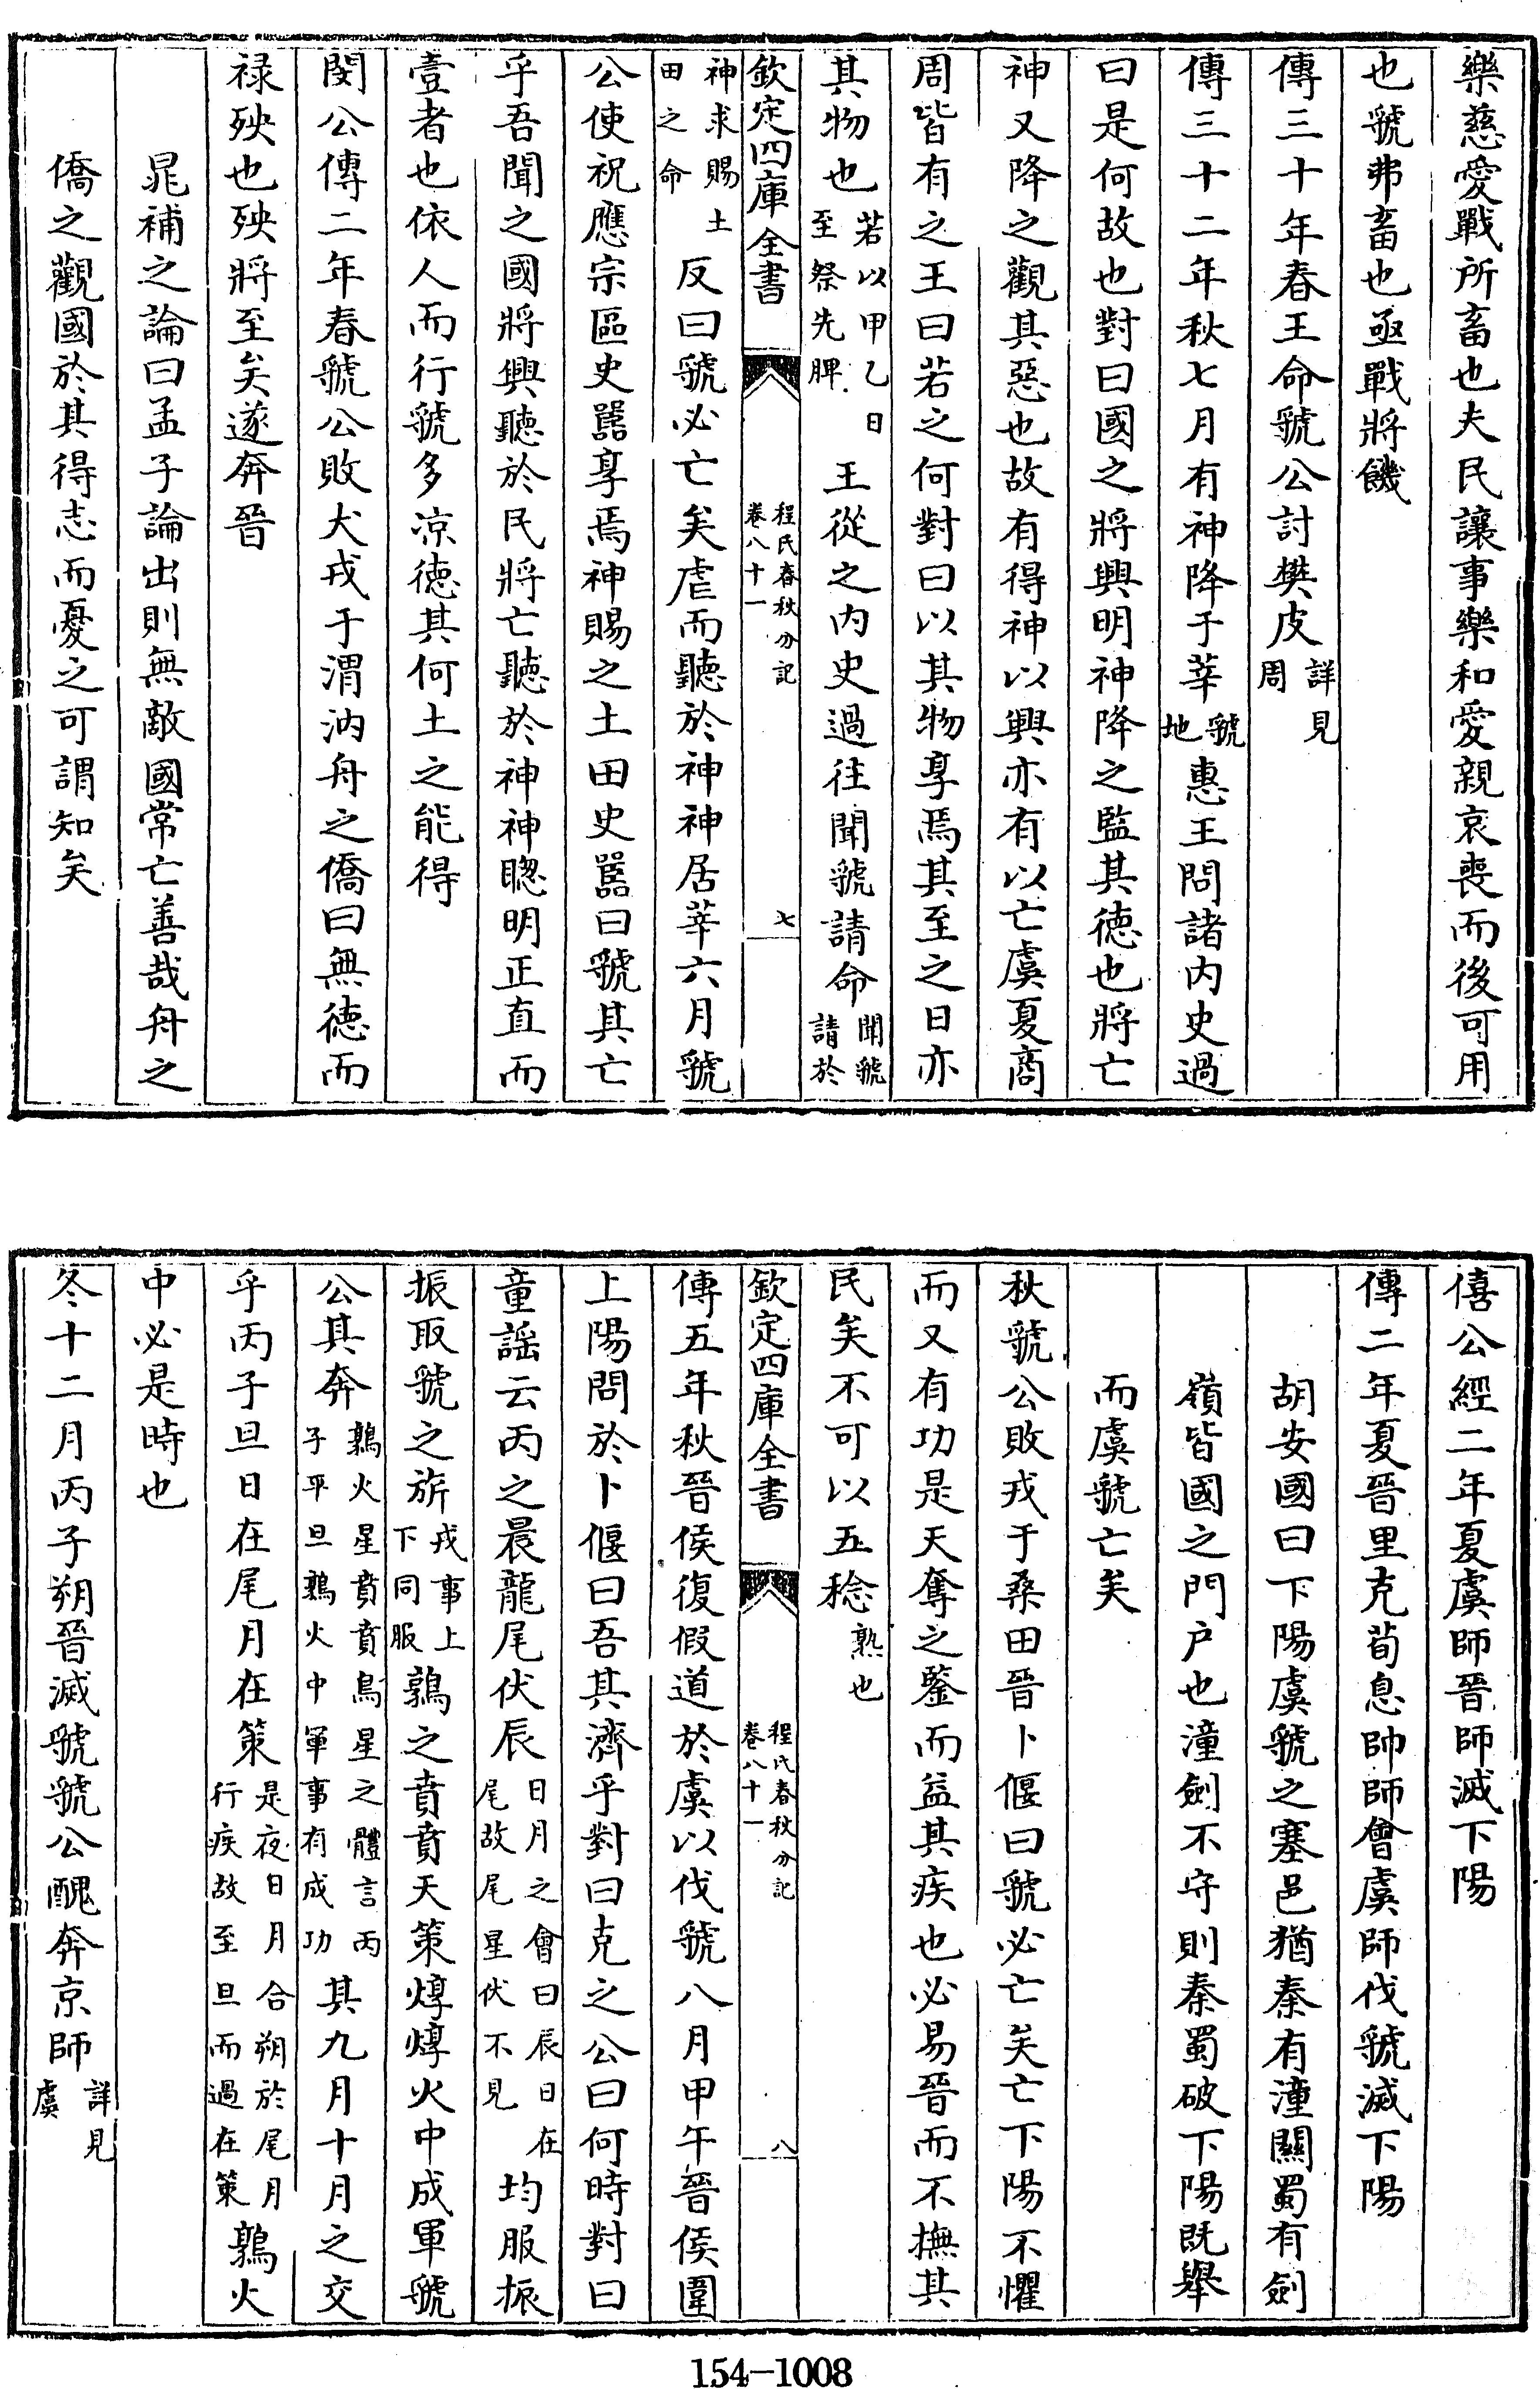 樂慈愛戰所畜也夫民讓事樂和愛親哀喪而後可用
也虢弗畜也亟戰將饑
傳三十年春王命虢公討樊皮詳見周
傳三十二年秋七月有神降于莘虢地惠王問諸内史過
曰是何故也對曰國之將興明神降之監其徳也將亡
神又降之觀其惡也故有得神以興亦有以亡虞夏商
周皆有之王曰若之何對曰以其物享焉其至之日亦
其物也若以甲乙日至祭先脾王從之内史過往聞虢請命聞虢請於
欽定四庫全書 程氏春秋分記 卷八十一 七
神求賜土田之命反曰虢必亡矣虐而聽於神神居莘六月虢
公使祝應宗區史嚚享焉神賜之土田史嚚曰虢其亡
乎吾聞之國將興聽於民將亡聽於神神聰明正直而
壹者也依人而行虢多凉徳其何土之能得
閔公傳二年春虢公敗犬戎于渭汭舟之僑曰無徳而
禄殃也殃將至矣遂奔晉
晁補之論曰孟子論出則無敵國常亡善哉舟之
僑之觀國於其得志而憂之可謂知矣
僖公經二年夏虞師晉師滅下陽
傳二年夏晉里克荀息帥師會虞師伐虢滅下陽
胡安國曰下陽虞虢之塞邑猶秦有潼關蜀有劍
嶺皆國之門户也潼劍不守則秦蜀破下陽既舉
而虞虢亡矣
秋虢公敗戎于桑田晉卜偃曰虢必亡矣亡下陽不懼
而又有功是天奪之鑒而益其疾也必易晉而不撫其
民矣不可以五稔熟也
欽定四庫全書 程氏春秋分記 卷八十一 八
傳五年秋晉侯復假道於虞以伐虢八月甲午晉侯圍
上陽問於卜偃曰吾其濟乎對曰克之公曰何時對曰
童謡云丙之晨龍尾伏辰日月之會曰辰日在尾故尾星伏不見均服振
振取虢之旂戎事上下同服鶉之賁賁天策焞焞火中成軍虢
公其奔鶉火星賁賁鳥星之體言丙子平旦鶉火中軍事有成功其九月十月之交
乎丙子旦日在尾月在策是夜日月合朔於尾月行疾故至旦而過在策鶉火
中必是時也
冬十二月丙子朔晉滅虢虢公醜奔京師詳見虞
154-1008